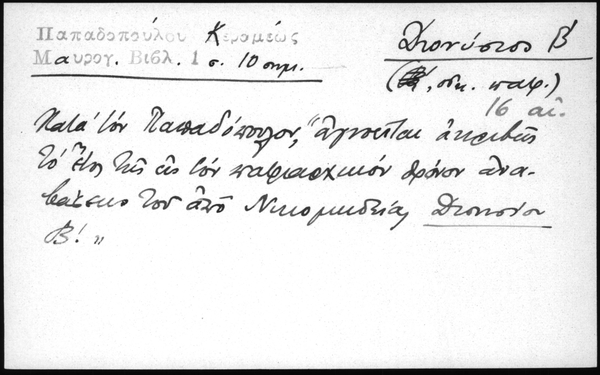 Παπαδοπούλου Κεραμέως
Μαυρογ. Βιβλ. 1 σ. 10 σημ.
Διονύσιος Β'
(Β', οἰκ. πατρ.)
16 αἰ.
Κατὰ τὸν Παπαδόπουλον, "ἀγνοεῖται ἀκριβῶς
τὸ ἔτος τῆς εἰς τὸν πατριαρχικὸν θρόνον ἀνα-
βάσεως τοῦ ἀπὸ Νικομηδείας Διονυσίου
Β'."